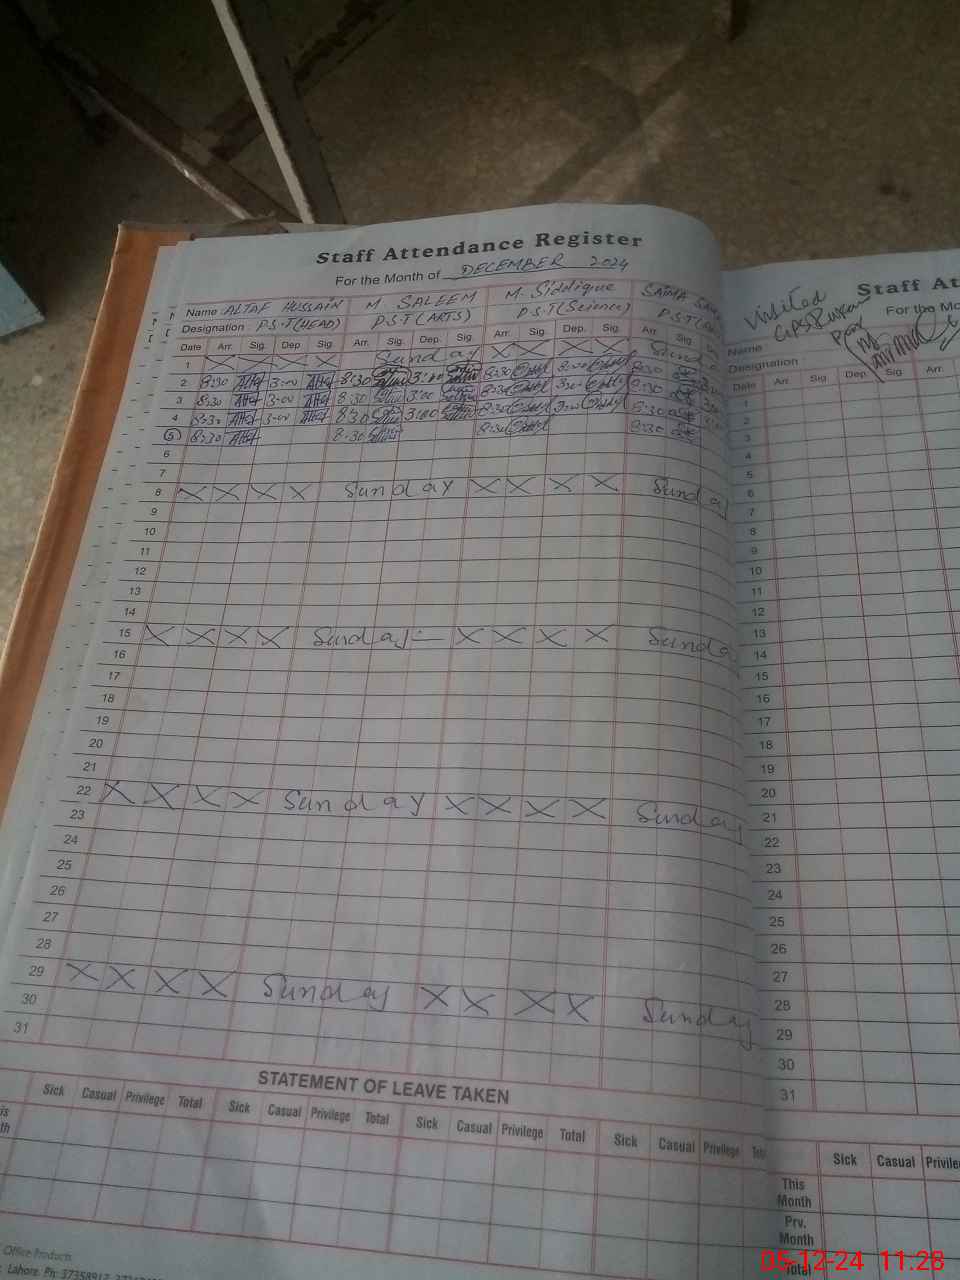 Staff Attendance Register
For the Month of DECEMBER 2024
Name ALTAF HUSSAIN M. SALEEM M. Siddique SAIMA
Designation P.S.T (HEAD) P.S.T (ARTS) P.S.T (Science) P.S.T
Date Arr. Sig. Dep. Sig. Arr. Sig. Dep. Sig. Arr. Sig. Dep. Sig. Arr. Sig
1 X X X X Sunday X X X X Sund
2 8:30 3:00 8:30 3:00 8:30 8:30
3 8:30 3:00 8:30 3:00 8:30 3:00 8:30
4 8:30 3:00 8:30 3:00 8:30 3:00 8:30
5 8:30 8:30 8:30 8:30
6
7
8 X X X X Sunday X X X X Sunday
9
10
11
12
13
14
15 X X X X Sunday X X X X Sunda
16
17
18
19
20
21
22 X X X X Sunday X X X X Sunday
23
24
25
26
27
28
29 X X X X Sunday X X X X Sunday
30
31
STATEMENT OF LEAVE TAKEN
Sick Casual Privilege Total Sick Casual Privilege Total Sick Casual Privilege Total Sick Casual Privilege Tota
is
th
Office Products
Lahore. Ph: 37358917
Visited
Staff At
For the Mo
Name
Designation
Date Arr. Sig. Dep. Sig Arr.
1
2
3
4
5
6
7
8
9
10
11
12
13
14
15
16
17
18
19
20
21
22
23
24
25
26
27
28
29
30
31
Sick Casual Privile
This
Month
Prv.
Month
Total
05-12-24 11.28